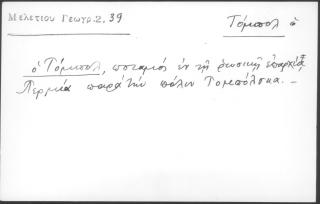 Μελετίου Γεωγρ. 2, 39
Τόμπολ ὁ
ὁ Τόμπολ, ποταμὸς ἐν τῇ ῥωσικῇ ἐπαρχίᾳ
Περμίᾳ παρὰ τὴν πόλιν Τομπόλσκα. —